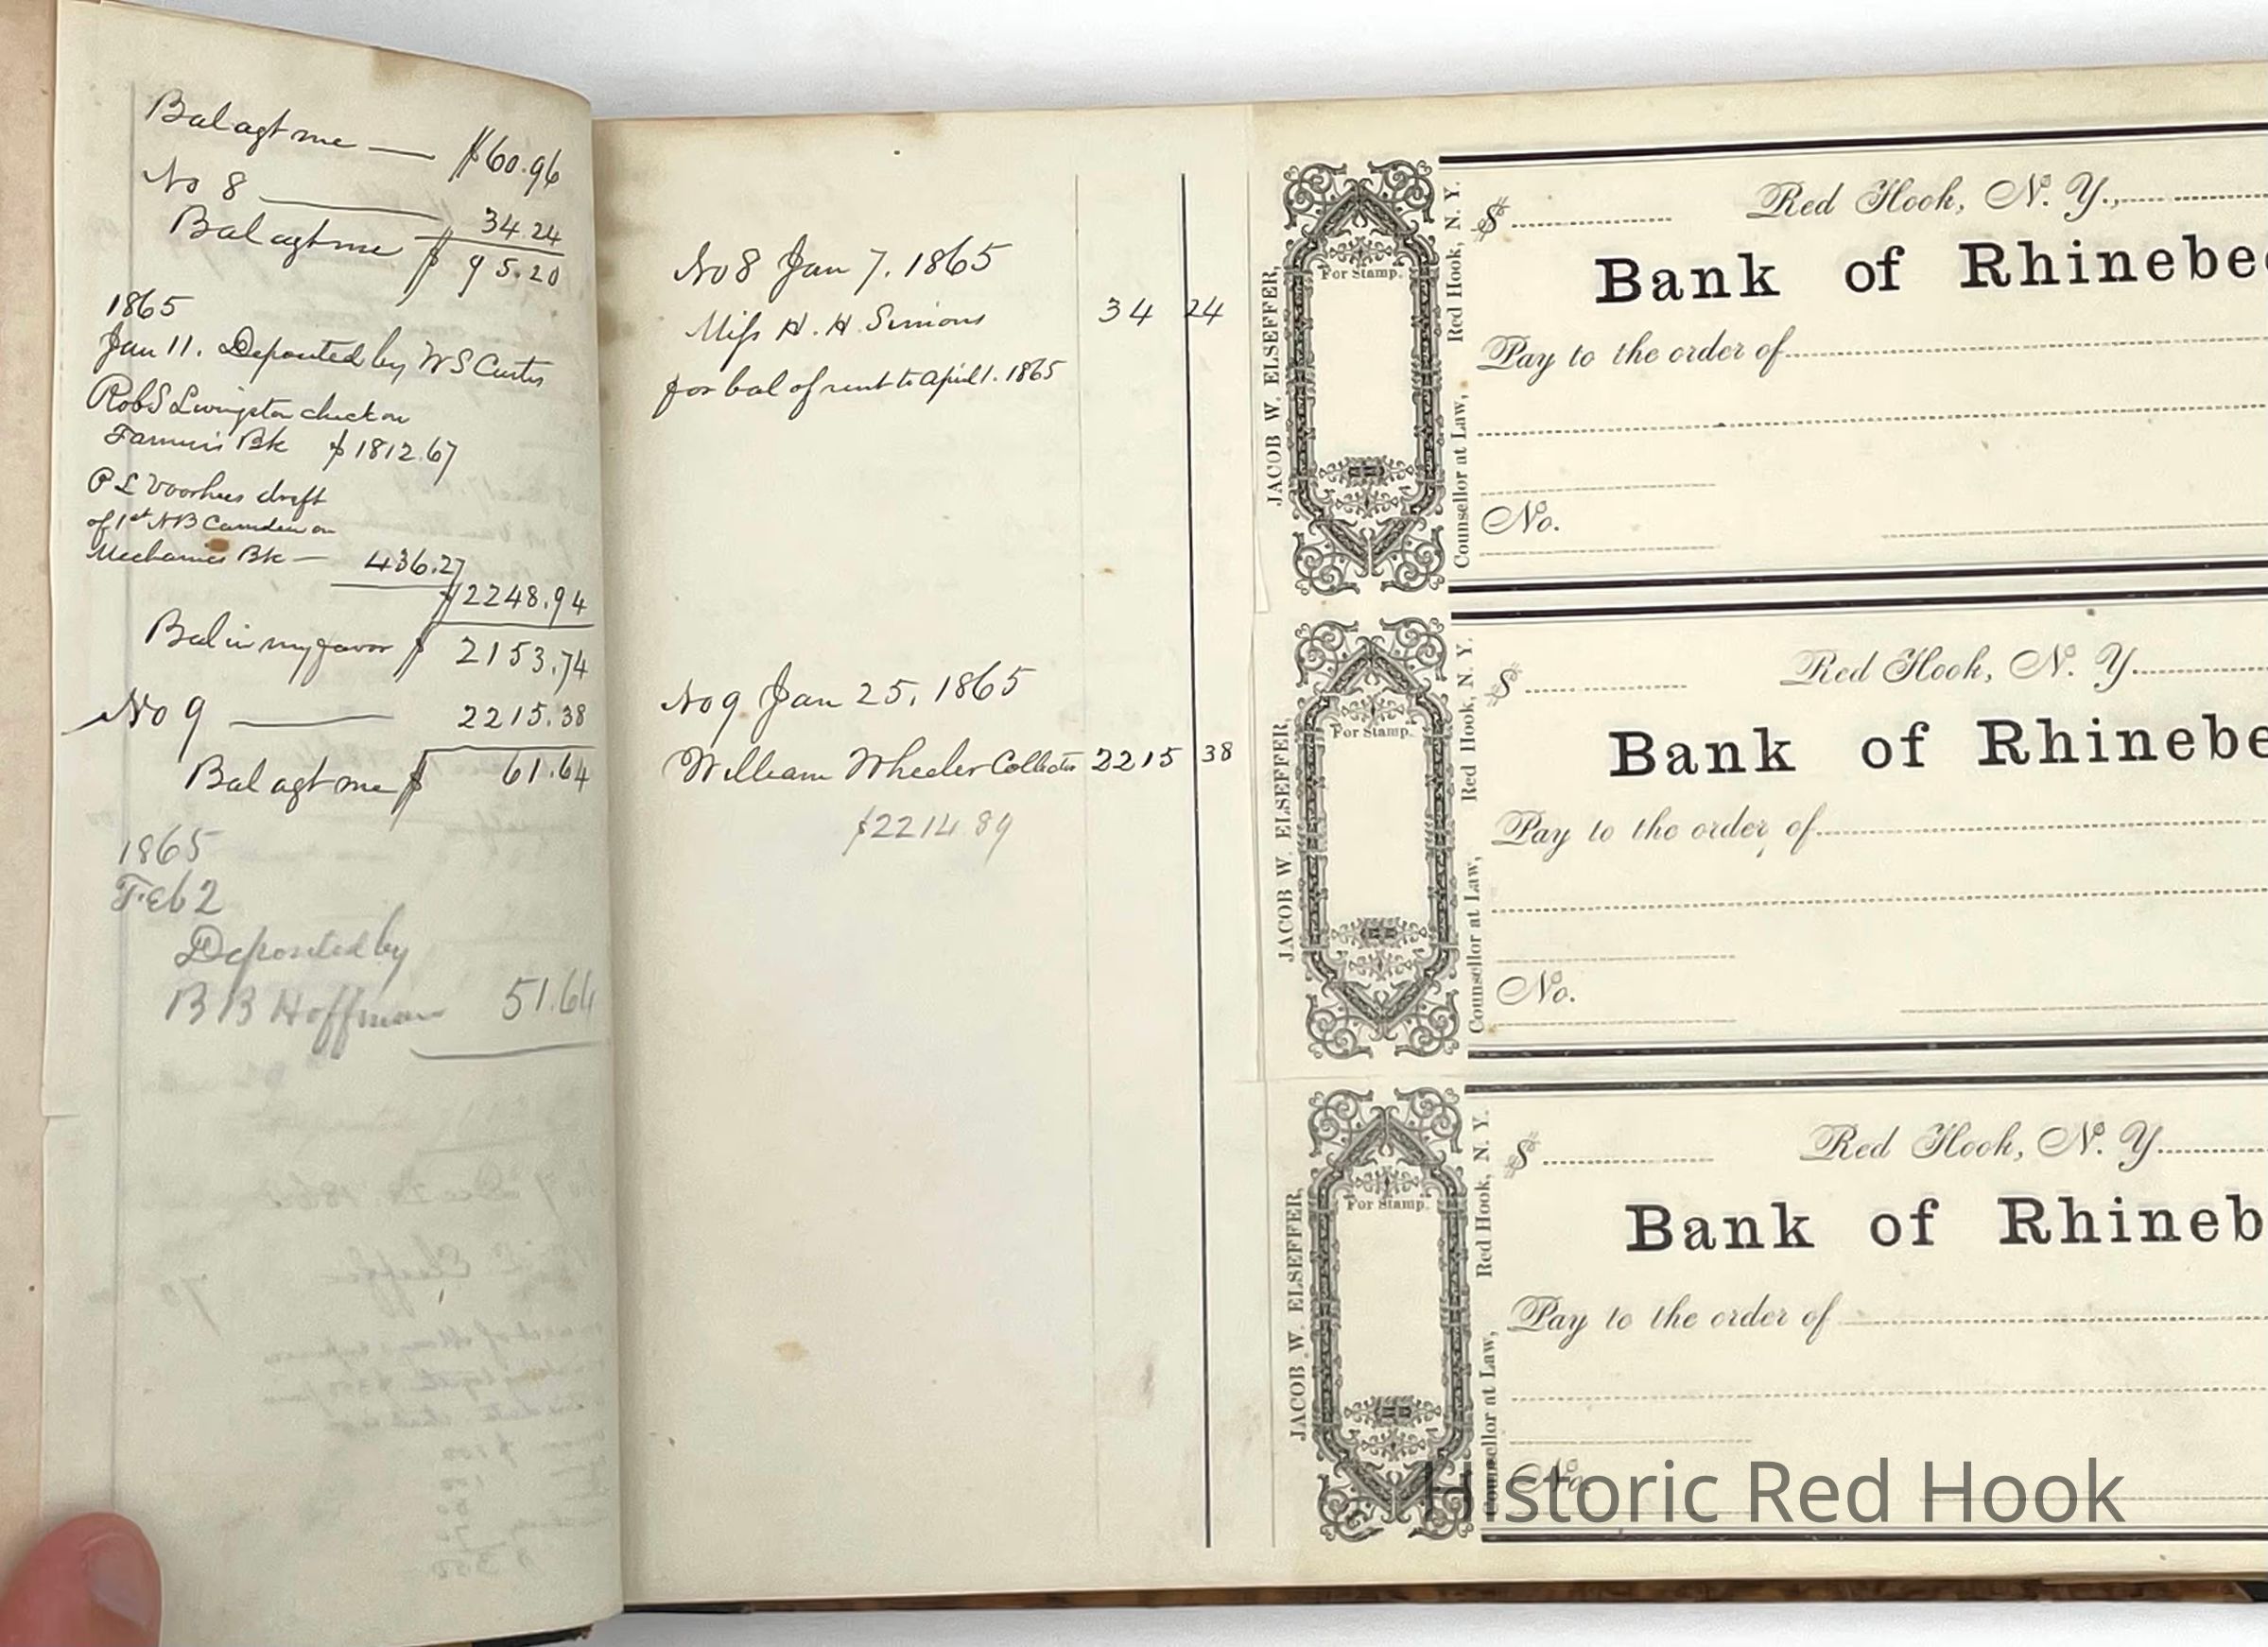 Bal agt me — $60.96
No 8 — 34.24
Bal agt me $ 95.20
1865
Jan 11. Deposited by W S Curtis
Rob S Livingston check on
Farmers Bk $1812.67
P L Voorhees draft
of 1st N B Camden on
Mechanics Bk — 436.27
$2248.94
Bal in my favor $ 2153.74
No 9 — 2215.38
Bal agt me $ 61.64
1865
Feb 2
Deposited by
B B Hoffman 51.64
No 8 Jan 7. 1865
Miss H. H. Simons 34 24
for bal of rent to April 1. 1865
No 9 Jan 25. 1865
William Wheeler Collector 2215 38
$2214.89
JACOB W. ELSEFFER,
For Stamp.
Counsellor at Law, Red Hook, N. Y.
$ Red Hook, N. Y.,
Bank of Rhinebe
Pay to the order of
No.
JACOB W. ELSEFFER,
For Stamp.
Counsellor at Law, Red Hook, N. Y.
$ Red Hook, N. Y.
Bank of Rhinebe
Pay to the order of
No.
JACOB W. ELSEFFER,
For Stamp.
Counsellor at Law, Red Hook, N. Y.
$ Red Hook, N. Y.
Bank of Rhineb
Pay to the order of
No.
Historic Red Hook